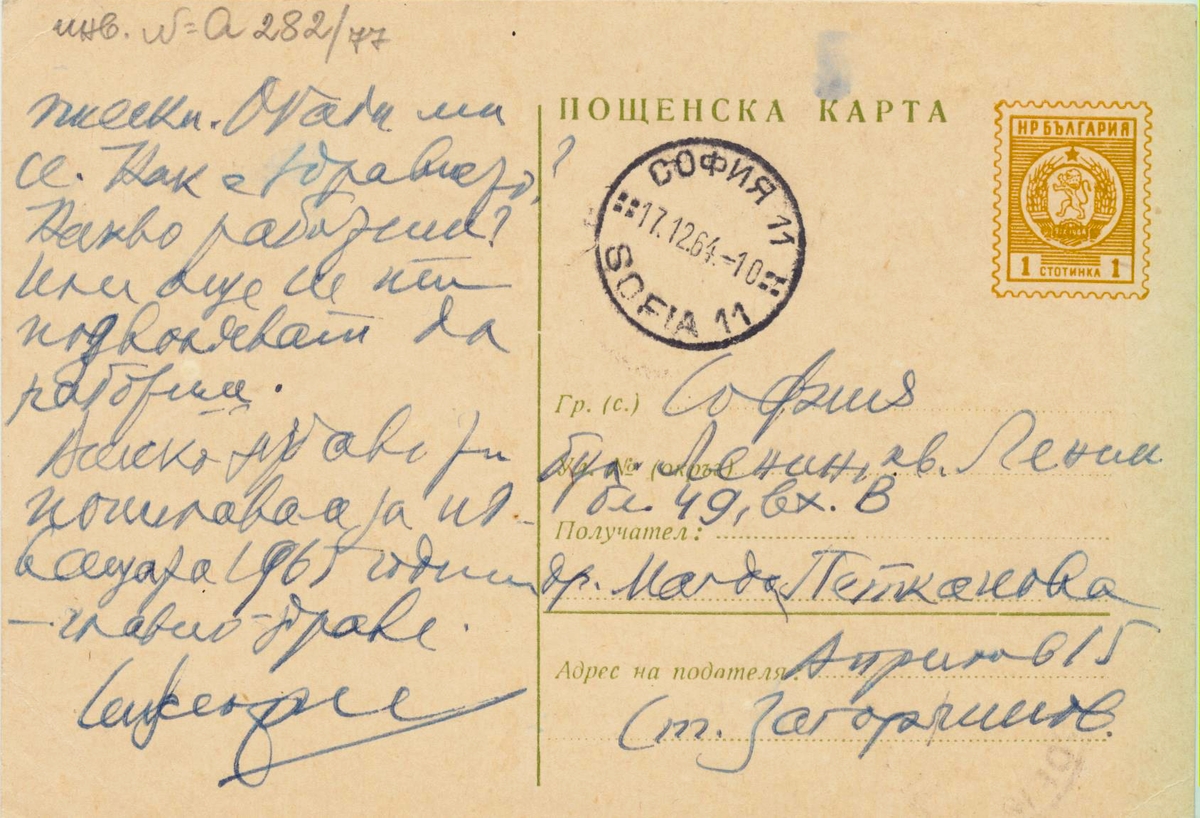 инв. №=А 282/77
Обади ми
се. Как е здравето?
Какво работиш?
Или още не ти
позволяват да
работиш.
Всичко хубаво ти
пожелавам за
1965 година
– главно – здраве.
ПОЩЕНСКА КАРТА
НР БЪЛГАРИЯ
1 СТОТИНКА 1
СОФИЯ 11
17.12.64.-10
SOFIA 11
Гр. (с.) София
Ул. № (окръг) бул. Ленин, кв. Ленин
бл. 49, вх. В
Получател:
др. Магда Петканова
Адрес на подателя Априлов 15
Ст. Загорчинов.